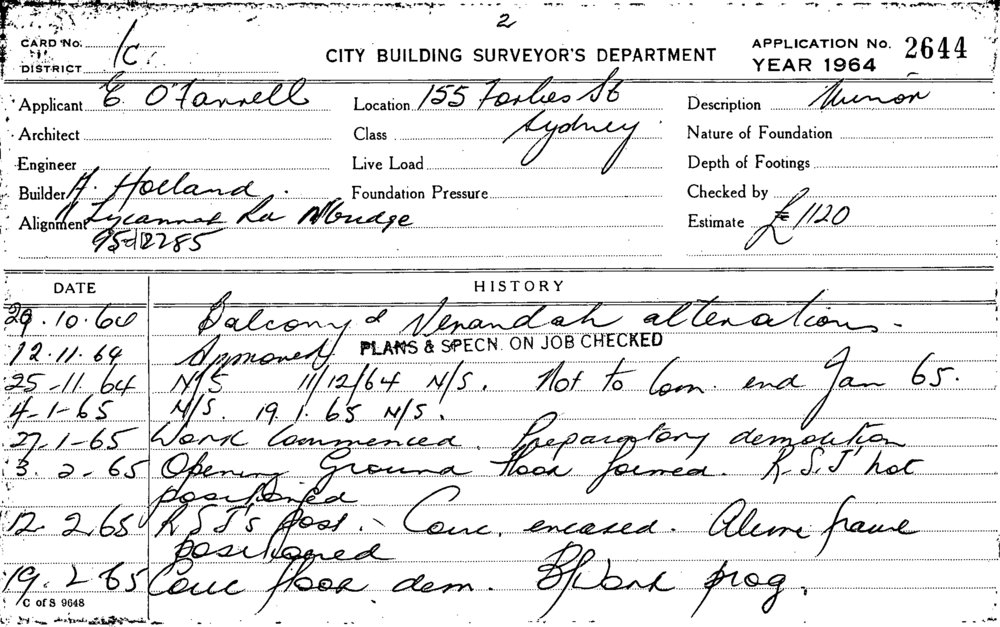 2
CARD No. 1c. CITY BUILDING SURVEYOR'S DEPARTMENT APPLICATION No. 2644
DISTRICT YEAR 1964
Applicant E. O'Farrell Location 155 Forbes St Description Minor
Architect Class Sydney. Nature of Foundation
Engineer Live Load Depth of Footings
Builder A. Holland. Foundation Pressure Checked by
Alignment Rd Estimate £1120
2285
DATE HISTORY
29.10.64 Balcony & Verandah alterations.
12.11.64 Approved. PLANS & SPECN. ON JOB CHECKED
25-11.64 N/S 11/12/64 N/S. Not to Com. end Jan 65.
4-1-65 N/S. 19.1.65 N/S.
27-1-65 Work Commenced. Preparatory demolition
3.2.65 Opening Ground floor formed. R.S.J' not
positioned
12.2.65 R.S.J's post. - Conc. encased. Alum frame
positioned
19.2.65 Conc floor dem. B/Work prog.
C of S 9648